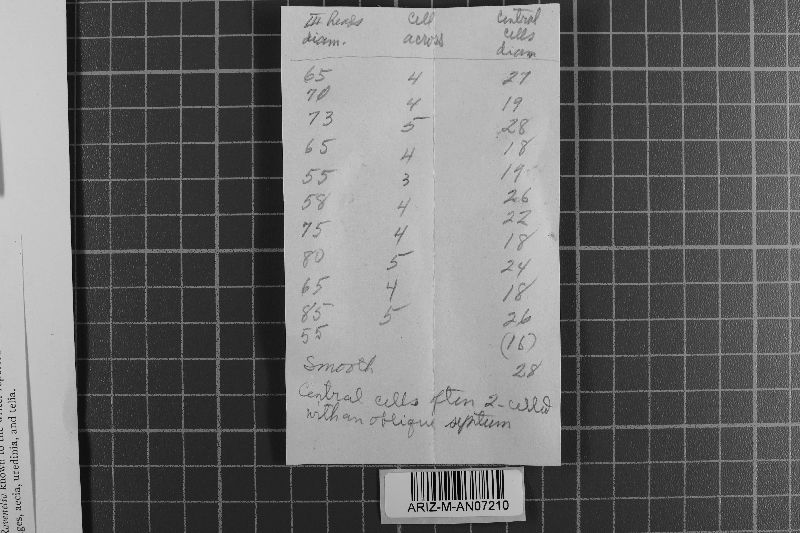 III Heads Cell Central
diam. across cells
diam
65 4 27
70 4 19
73 5 28
65 4 18
55 3 19
58 4 26
75 4 22
80 5 18
65 4 24
85 5 18
55 26
(16)
Smooth 28
Central cells often 2-celled
with an oblique septum
ARIZ-M-AN07210
known to the
ges, aecia, uredinia, and telia.